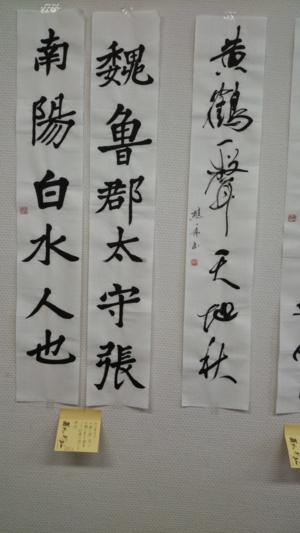 黄鶴一聲天地秋
魏魯郡太守張
南陽白水人也